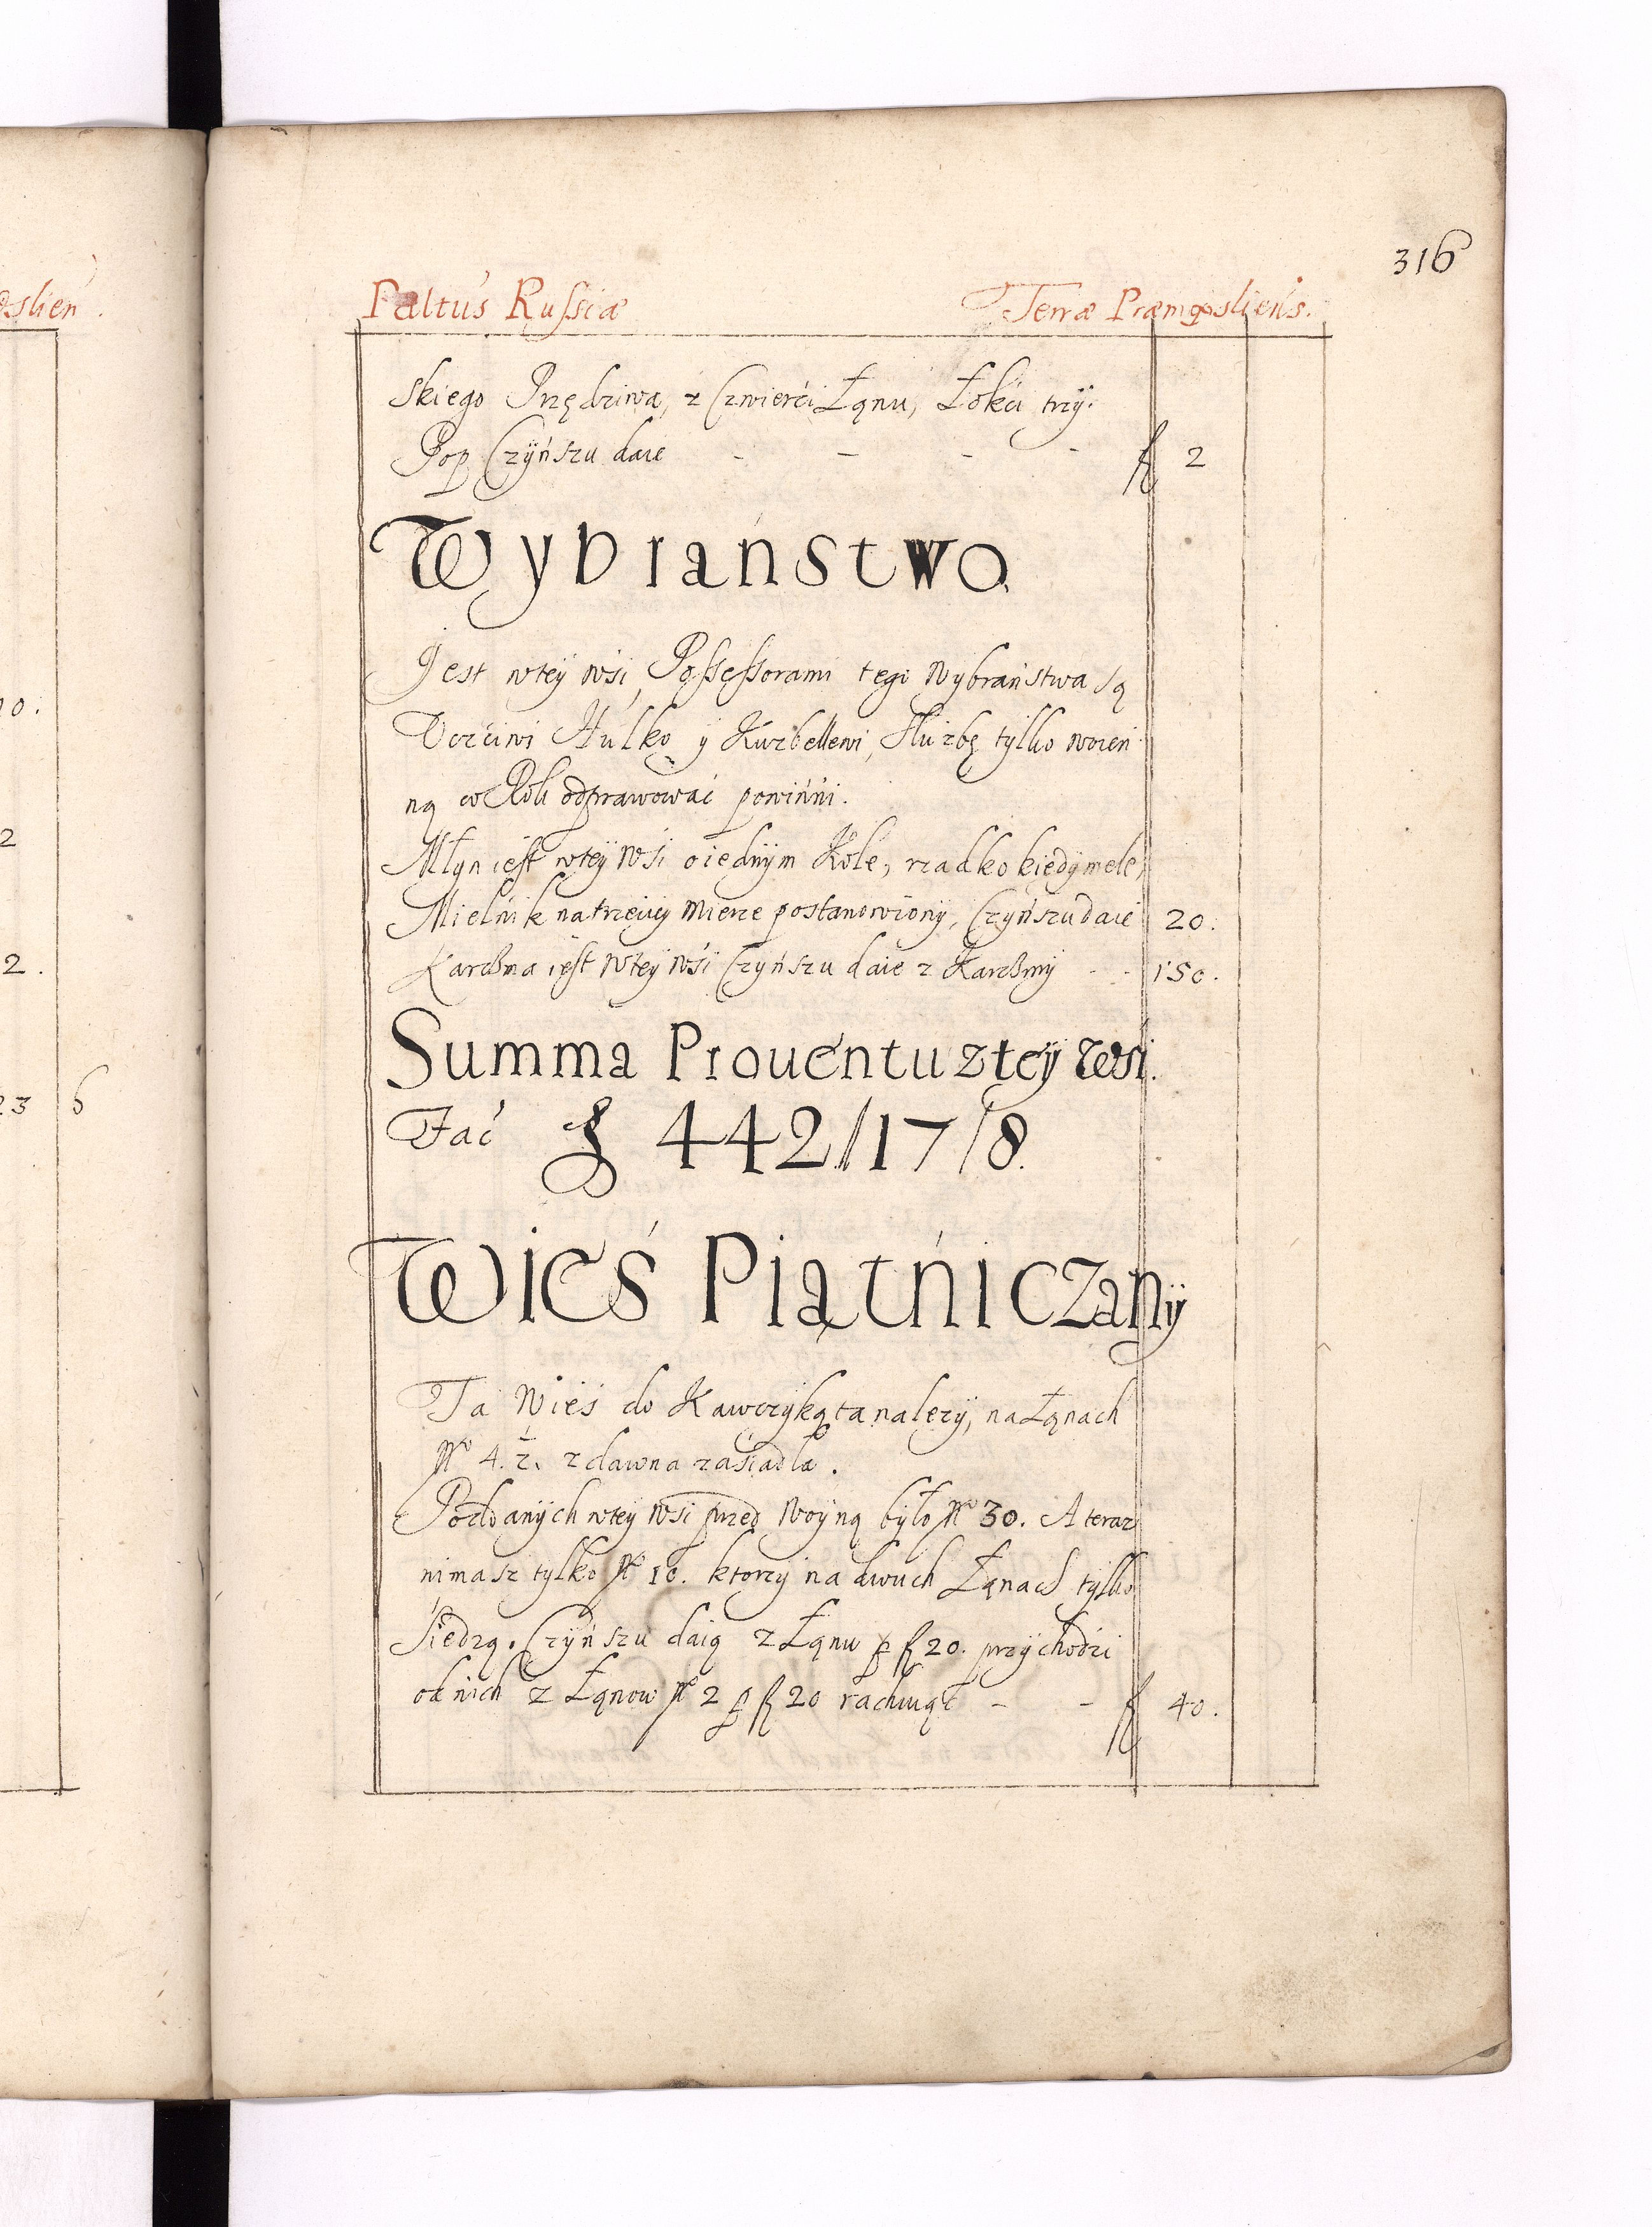 316
Paltus Russiæ Terræ Præmysliens.
skiego Przędziwa, z Czwierci Łąnu, Łokci trzÿ.
Pop Czÿńszu daie - - - - fl 2
Wybraństwo
Jest wteÿ wsi, Possessorami tego Wybraństwa są
Uczciwi Hulko ÿ Kurbellewi, Służbę tylko woien
ną co Rok odprawować powinni.
Młyn iest wteÿ Wsi o iednÿm Kole, rzadko kiedÿ miele,
Mielnik na trzeciey Mierze postanowionÿ, Czyńszu daie 20.
Karczma iest Wteÿ Wsi Czyńszu daie z Karczmÿ - - 150.
Summa Prouentu z teÿ Wsi.
Fac fl 442/17/8.
Wieś Piątniczanÿ
Ta Wieś do Kawczÿkąta należÿ, na Łąnach
No 4. ½. zdawna zasiadła.
Poddanÿch wteÿ Wsi przed Woÿną było No 30. A teraz
nimasz tylko No 10. ktorzÿ na dwuch Łąnach tylko
Siedzą. Czÿńszu daią z Łąnu p fl 20. przÿchodzi
od nich z Łąnow No 2 p fl 20 rachuiąc - - fl 40.
slien.
10:
2
2.
23 6